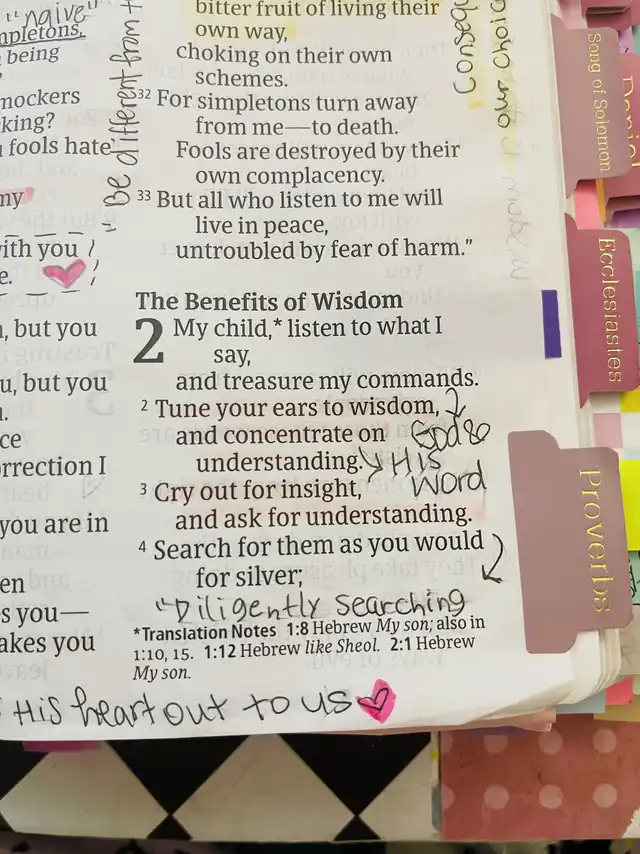 "naive"
mpletons,
being
mockers
king?
fools hate
my
with you
e.
, but you
u, but you
ce
rrection I
you are in
en
s you—
akes you
"Be different from t
bitter fruit of living their
own way,
choking on their own
schemes.
32 For simpletons turn away
from me—to death.
Fools are destroyed by their
own complacency.
33 But all who listen to me will
live in peace,
untroubled by fear of harm."
Consequ
our choic
The Benefits of Wisdom
2 My child,* listen to what I
say,
and treasure my commands.
2 Tune your ears to wisdom,
and concentrate on
understanding.
God &
His
Word
3 Cry out for insight,
and ask for understanding.
4 Search for them as you would
for silver;
"Diligently searching
*Translation Notes 1:8 Hebrew My son; also in
1:10, 15. 1:12 Hebrew like Sheol. 2:1 Hebrew
My son.
His heart out to us
Song of Solomon
Daniel
Ecclesiastes
Proverbs